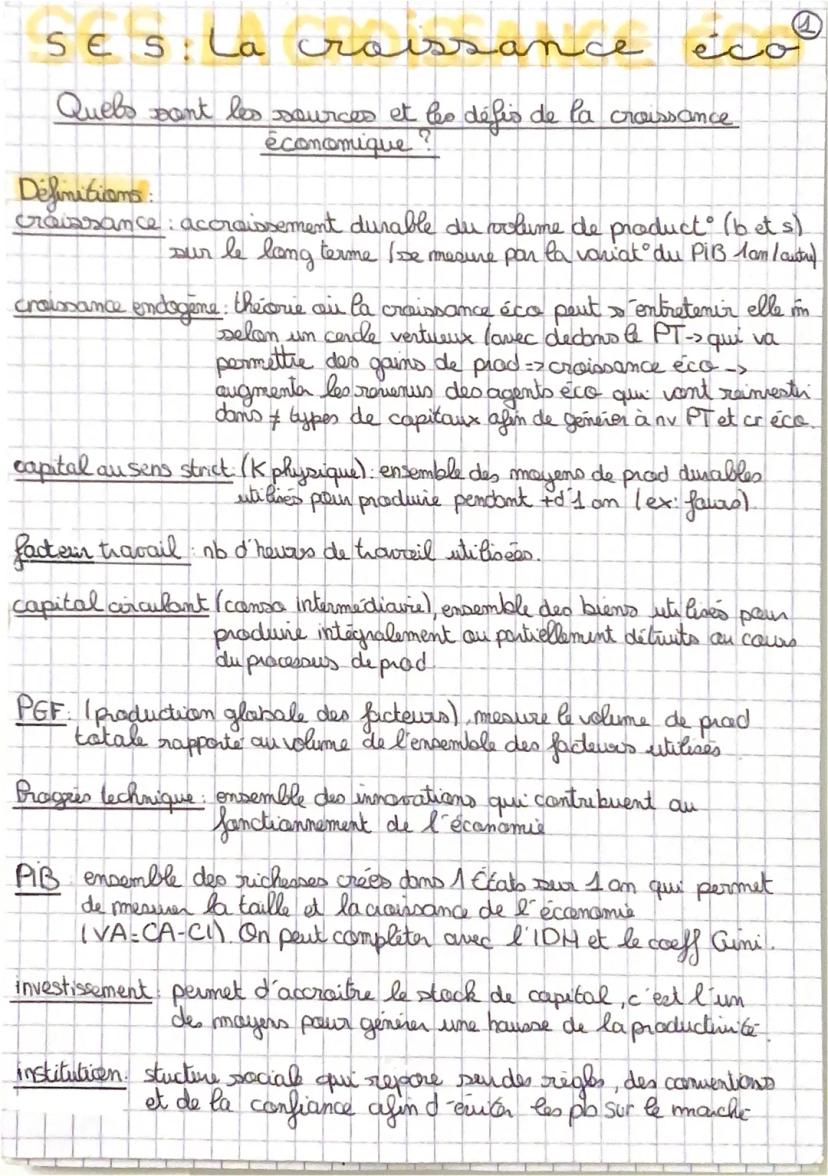 1
SES : La croissance éco
Quels sont les sources et les défis de la croissance
économique ?
Définitions :
croissance : accroissement durable du volume de product° (b et s)
sur le long terme (se mesure par la variat° du PiB 1an/autre)
croissance endogène : théorie où la croissance éco peut s'entretenir elle m
selon un cercle vertueux (avec dedans le PT -> qui va
permettre des gains de prod => croissance éco ->
augmenter les revenus des agents éco qui vont réinvestir
dans ≠ types de capitaux afin de générer à nv PT et cr éco.
capital au sens strict : (K physique) : ensemble des moyens de prod durables
utilisés pour produire pendant + d'1 an (ex: fours).
facteur travail : nb d'heures de travail utilisées.
capital circulant (conso intermédiaire), ensemble des biens utilisés pour
produire intégralement ou partiellement détruits au cours
du processus de prod
PGF : (production globale des facteurs), mesure le volume de prod
totale rapporté au volume de l'ensemble des facteurs utilisés
Progrès technique : ensemble des innovations qui contribuent au
fonctionnement de l'économie
PiB ensemble des richesses créés dans 1 États sur 1 an qui permet
de mesurer la taille et la croissance de l'économie
(VA=CA-CI). On peut compléter avec l'IDH et le coeff Gini.
investissement : permet d'accroitre le stock de capital, c'est l'un
des moyens pour générer une hausse de la productivité.
institution : stucture sociale qui repose sur des règles, des conventions
et de la confiance afin d'éviter les pb sur le marché